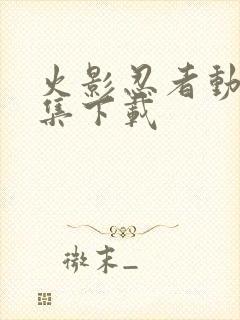 火影忍者動
集下載
微末_